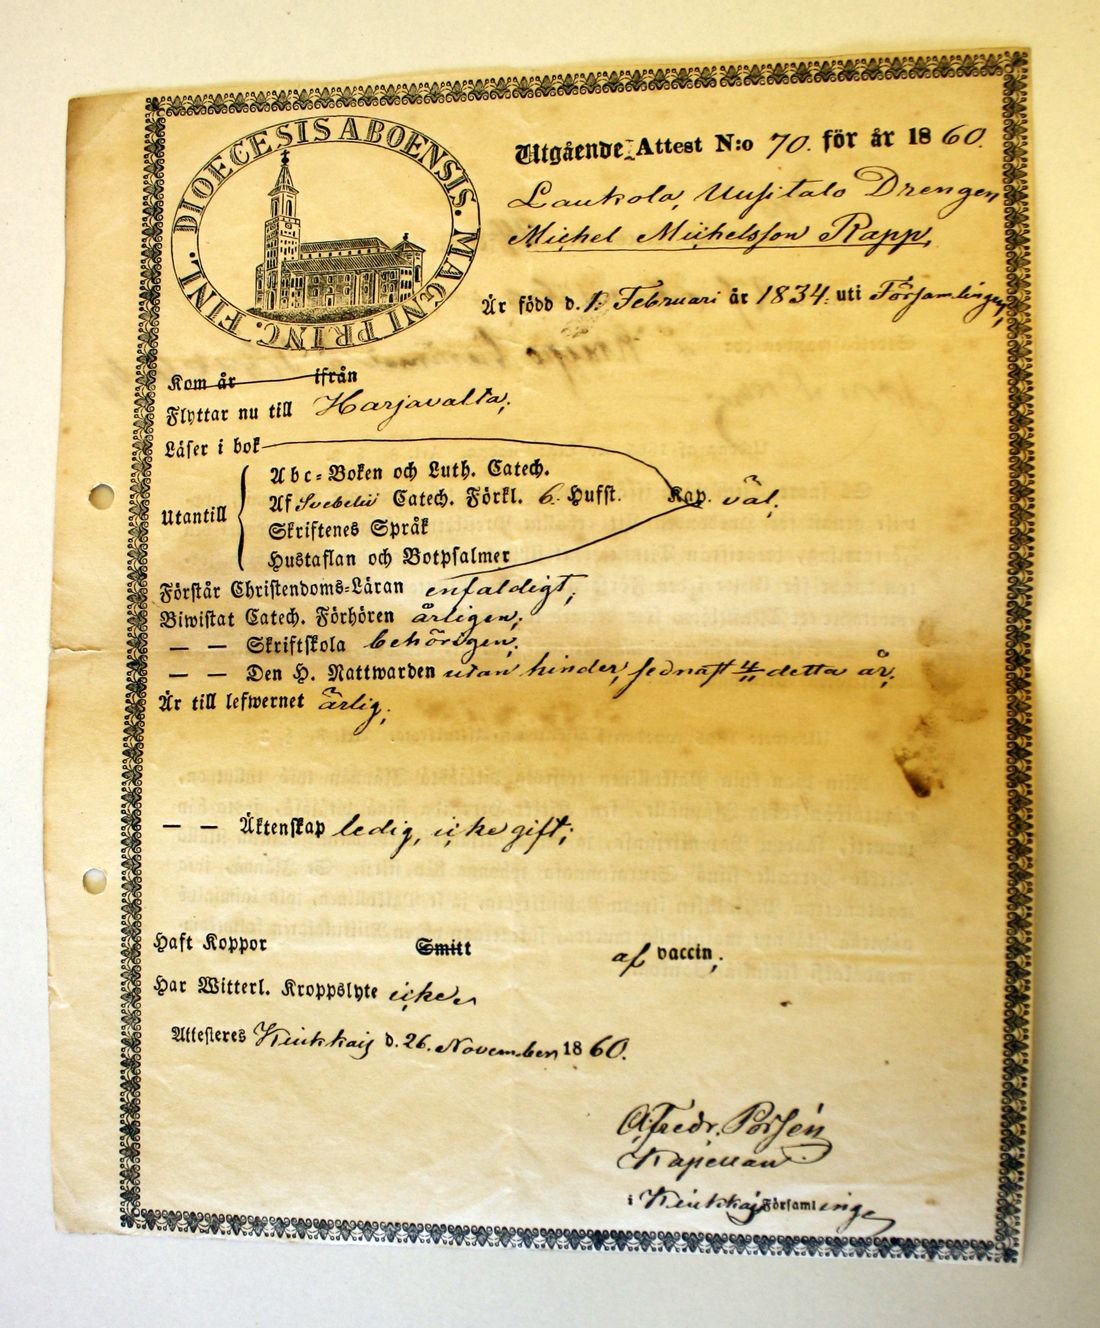 DIOECESIS ABOENSIS. MAGNI PRINC. FINL.
Utgående Attest N:o 70. för år 1860.
Laukola, Uusitalo Drengen
Michel Michelsson Rapp,
Är född d. 1. Februari år 1834. uti Församlingen,
Kom år ifrån
Flyttar nu till Harjavalta;
Läser i bok
Utantill
Abc-Boken och Luth. Catech.
Af Svebelii Catech. Förkl. 6. Hufst. Kap. väl,
Skriftenes Språk
Hustaflan och Botpsalmer
Förstår Christendoms-Läran enfaldigt;
Biwistat Catech. Förhören årligen;
— — Skriftskola behörigen;
— — Den H. Nattwarden utan hinder, sednast 4/11 detta år,
Är till lefwernet ärlig;
— — Äktenskap ledig, icke gift;
Haft Koppor Smitt af vaccin;
Har Witterl. Kroppslyte icke,
Attesteres Kiukkais d. 26. November 1860.
Alfredr. Porsén
Kapellan
i Kiukkais Församlinge